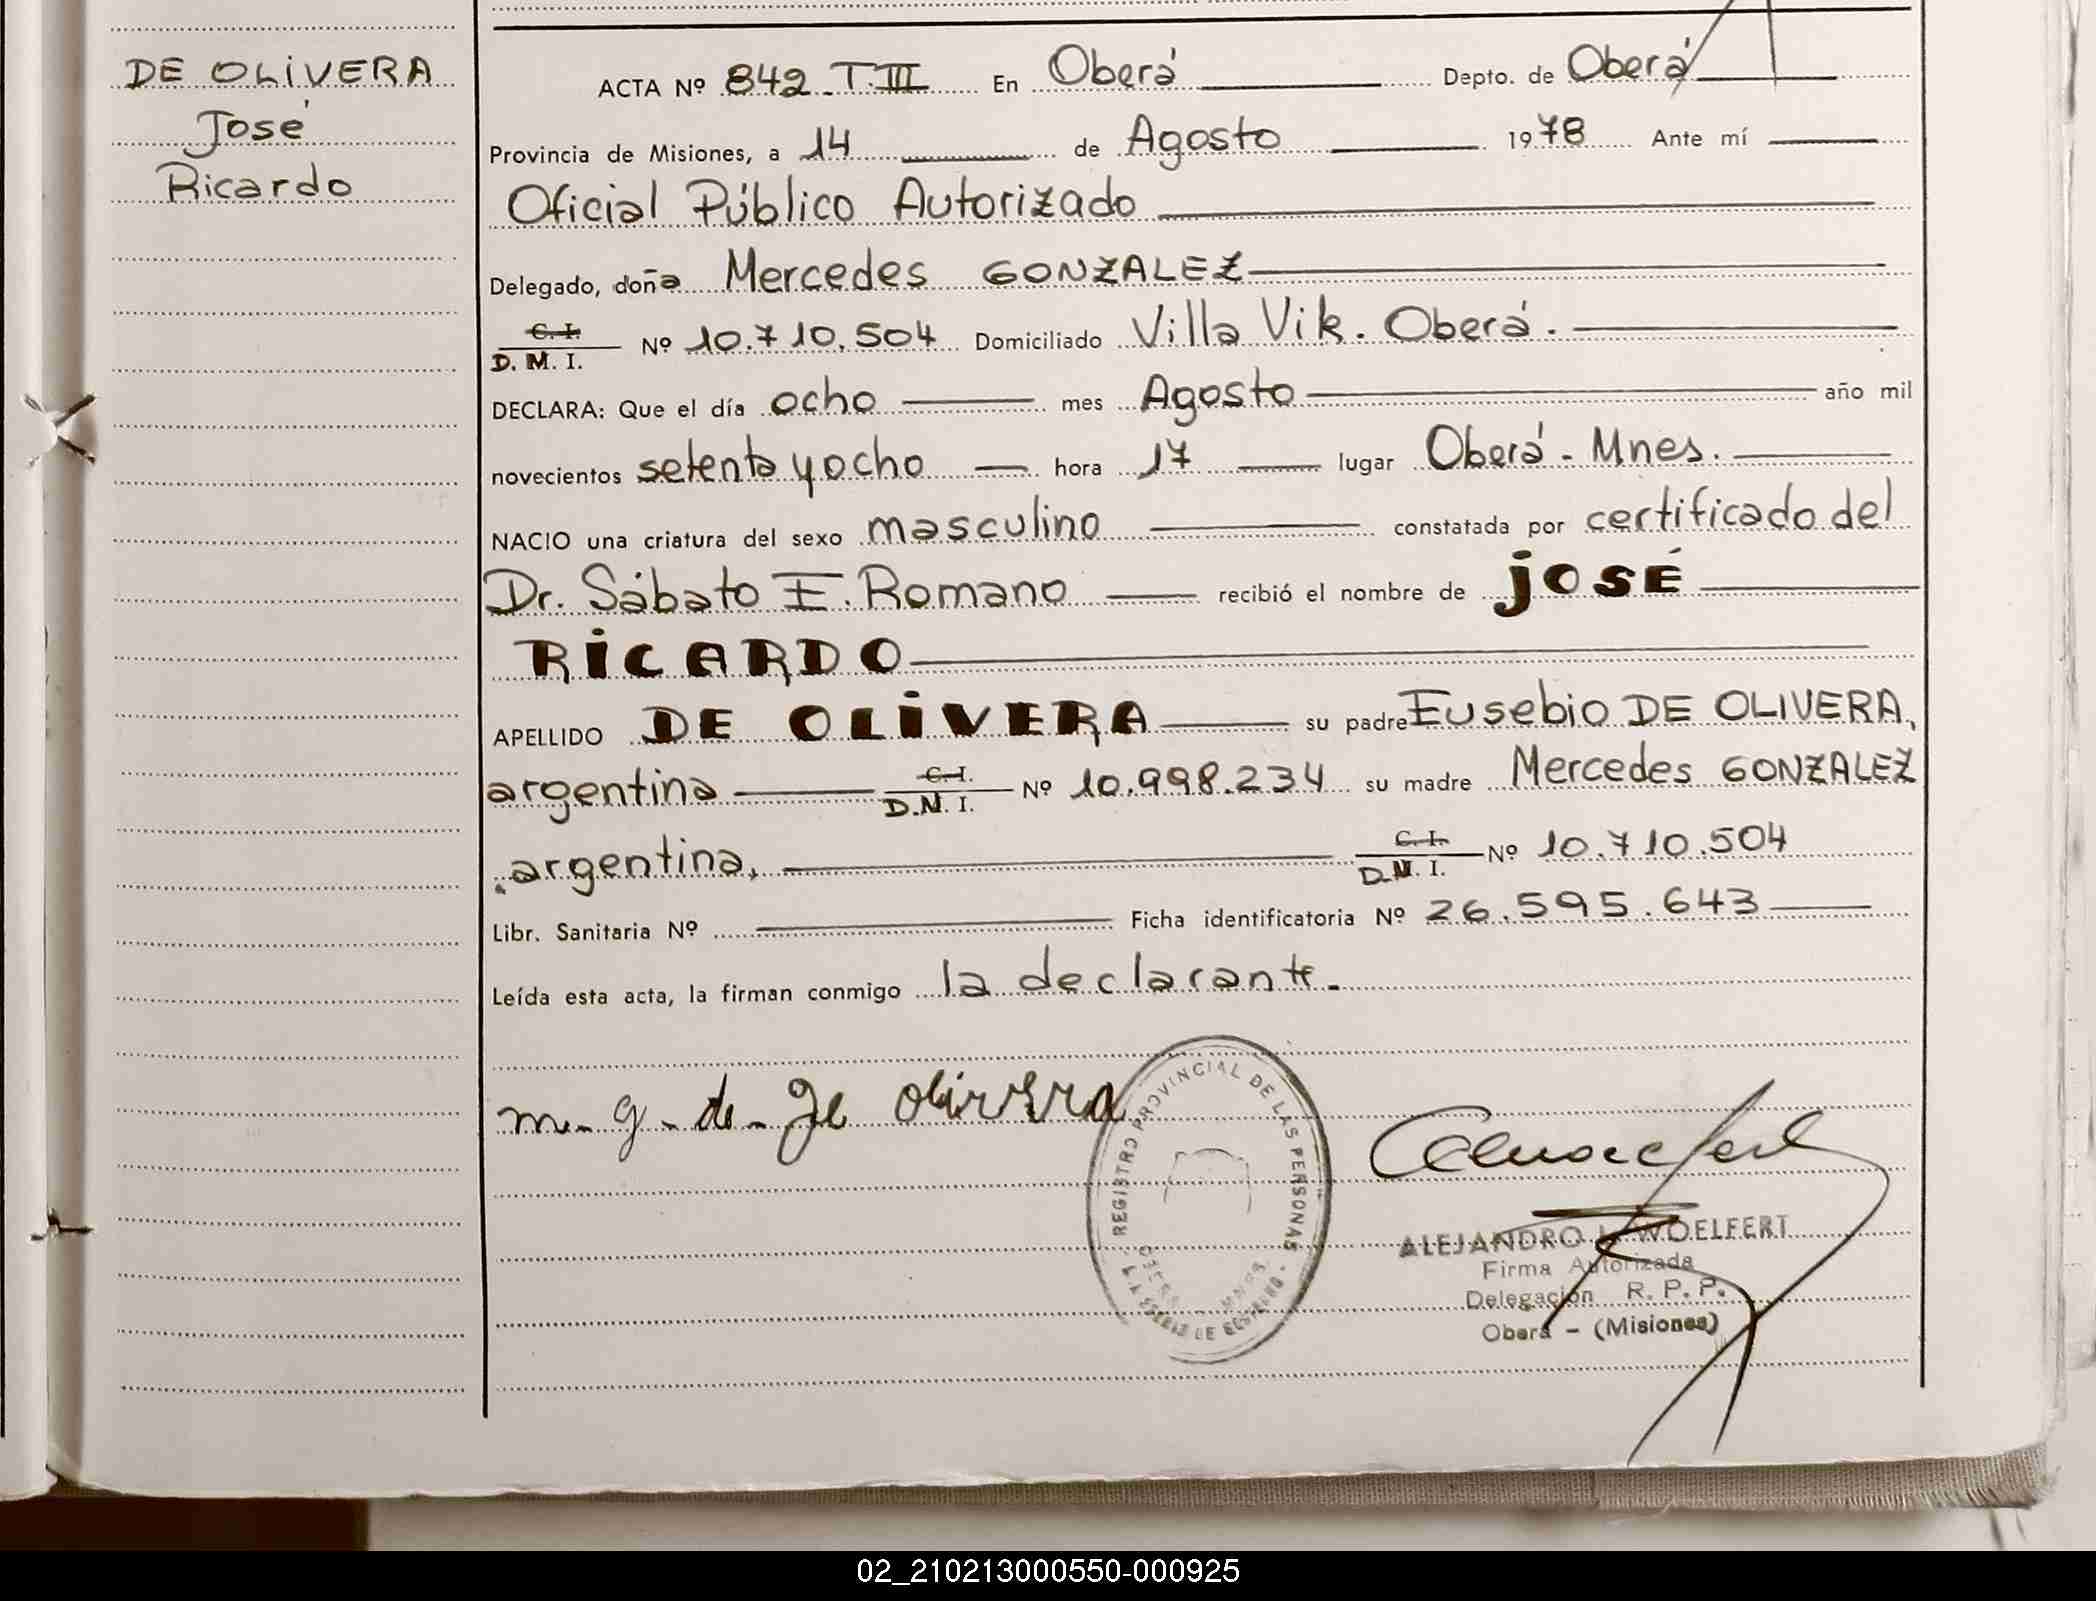 DE OLIVERA
José
Ricardo
ACTA Nº 842 T.III En Oberá Depto. de Oberá
Provincia de Misiones, a 14 de Agosto 1978 Ante mí
Oficial Público Autorizado
Delegado, doña Mercedes GONZALEZ
C. I.
D. M. I. Nº 10.710.504 Domiciliado Villa Vik. Oberá.
DECLARA: Que el día ocho mes Agosto año mil
novecientos setenta y ocho hora 17 lugar Oberá - Mnes.
NACIO una criatura del sexo masculino constatada por certificado del
Dr. Sábato F. Romano recibió el nombre de JOSÉ
RICARDO
APELLIDO DE OLIVERA su padre Eusebio DE OLIVERA,
argentina C. I.
D. N. I. Nº 10.998.234 su madre Mercedes GONZALEZ
argentina, C. I.
D. M. I. Nº 10.710.504
Libr. Sanitaria Nº Ficha identificatoria Nº 26.595.643
Leída esta acta, la firman conmigo la declarante.
m. g. de
REGISTRO PROVINCIAL DE LAS PERSONAS
ALEJANDRO WOELFERT
Firma Autorizada
Delegación R. P. P.
Oberá - (Misiones)
02_210213000550-000925